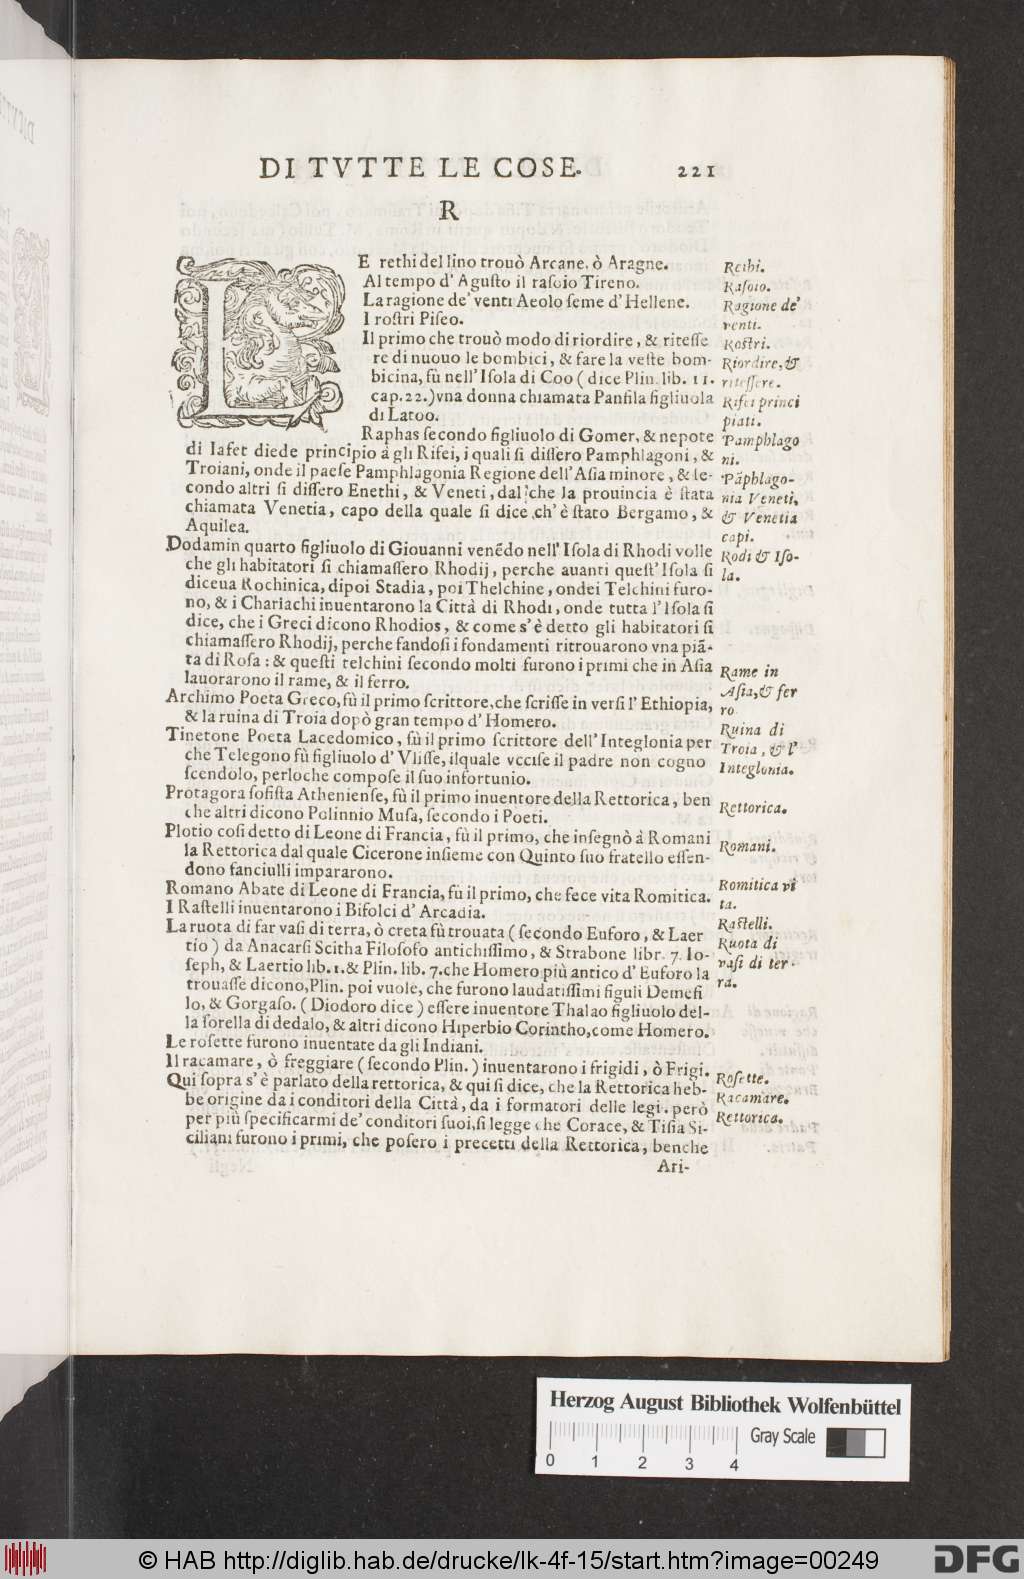 DI TVTTE LE COSE. 221
R
LE rethi del lino trouò Arcane, ò Aragne.
Al tempo d' Agusto il rasoio Tireno.
La ragione de' venti Aeolo seme d' Hellene.
I rostri Piseo.
Il primo che trouò modo di riordire, & ritesse
re di nuouo le bombici, & fare la veste bom-
bicina, fù nell' Isola di Coo ( dice Plin. lib. 11.
cap. 22.) vna donna chiamata Panfila figliuola
di Latoo.
Raphas secondo figliuolo di Gomer, & nepote
di Iafet diede principio à gli Rifei, i quali si dissero Pamphlagoni, &
Troiani, onde il paese Pamphlagonia Regione dell' Asia minore, & se-
condo altri si dissero Enethi, & Veneti, dal che la prouincia è stata
chiamata Venetia, capo della quale si dice ch' è stato Bergamo, &
Aquilea.
Dodamin quarto figliuolo di Giouanni venēdo nell' Isola di Rhodi volle
che gli habitatori si chiamassero Rhodij, perche auanti quest' Isola si
diceua Rochinica, dipoi Stadia, poi Thelchine, ondei Telchini furo-
no, & i Chariachi inuentarono la Città di Rhodi, onde tutta l' Isola si
dice, che i Greci dicono Rhodios, & come s' è detto gli habitatori si
chiamassero Rhodij, perche fandosi i fondamenti ritrouarono vna piā-
ta di Rosa: & questi telchini secondo molti furono i primi che in Asia
lauorarono il rame, & il ferro.
Archimo Poeta Greco, fù il primo scrittore, che scrisse in versi l' Ethiopia,
& la ruina di Troia dopò gran tempo d' Homero.
Tinetone Poeta Lacedomico, fù il primo scrittore dell' Integlonia per
che Telegono fù figliuolo d' Vlisse, ilquale vccise il padre non cogno
scendolo, perloche compose il suo infortunio.
Protagora sofista Atheniense, fù il primo inuentore della Rettorica, ben
che altri dicono Polinnio Musa, secondo i Poeti.
Plotio cosi detto di Leone di Francia, fù il primo, che insegnò à Romani
la Rettorica dal quale Cicerone insieme con Quinto suo fratello essen-
dono fanciulli impararono.
Romano Abate di Leone di Francia, fù il primo, che fece vita Romitica.
I Rastelli inuentarono i Bifolci d' Arcadia.
La ruota di far vasi di terra, ò creta fù trouata ( secondo Euforo, & Laer
tio ) da Anacarsi Scitha Filosofo antichissimo, & Strabone libr. 7. Io-
seph, & Laertio lib. 1. & Plin. lib. 7. che Homero più antico d' Euforo la
trouasse dicono, Plin. poi vuole, che furono laudatissimi figuli Demefi
lo, & Gorgaso. ( Diodoro dice ) essere inuentore Thalao figliuolo del-
la sorella di dedalo, & altri dicono Hiperbio Corintho, come Homero.
Le rosette furono inuentate da gli Indiani.
Il racamare, ò freggiare ( secondo Plin. ) inuentarono i frigidi, ò Frigi.
Qui sopra s' è parlato della rettorica, & qui si dice, che la Rettorica heb-
be origine da i conditori della Città, da i formatori delle legi. però
per più specificarmi de' conditori suoi, si legge che Corace, & Tisia Si-
ciliani furono i primi, che posero i precetti della Rettorica, benche
Ari-
Rethi.
Rasoio.
Ragione de'
venti.
Rostri.
Riordire, &
ritessere.
Rifei princi
piati.
Pamphlago
ni.
Pāphlago-
nia Veneti,
& Venetia
capi.
Rodi & Iso-
la.
Rame in
Asia, & fer
ro.
Ruina di
Troia, & l'
Integlonia.
Rettorica.
Romani.
Romitica vi
ta.
Rastelli.
Ruota di
vasi di ter-
ra.
Rosette.
Racamare.
Rettorica.
Herzog August Bibliothek Wolfenbüttel
Gray Scale
0 1 2 3 4
© HAB http://diglib.hab.de/drucke/lk-4f-15/start.htm?image=00249
DFG